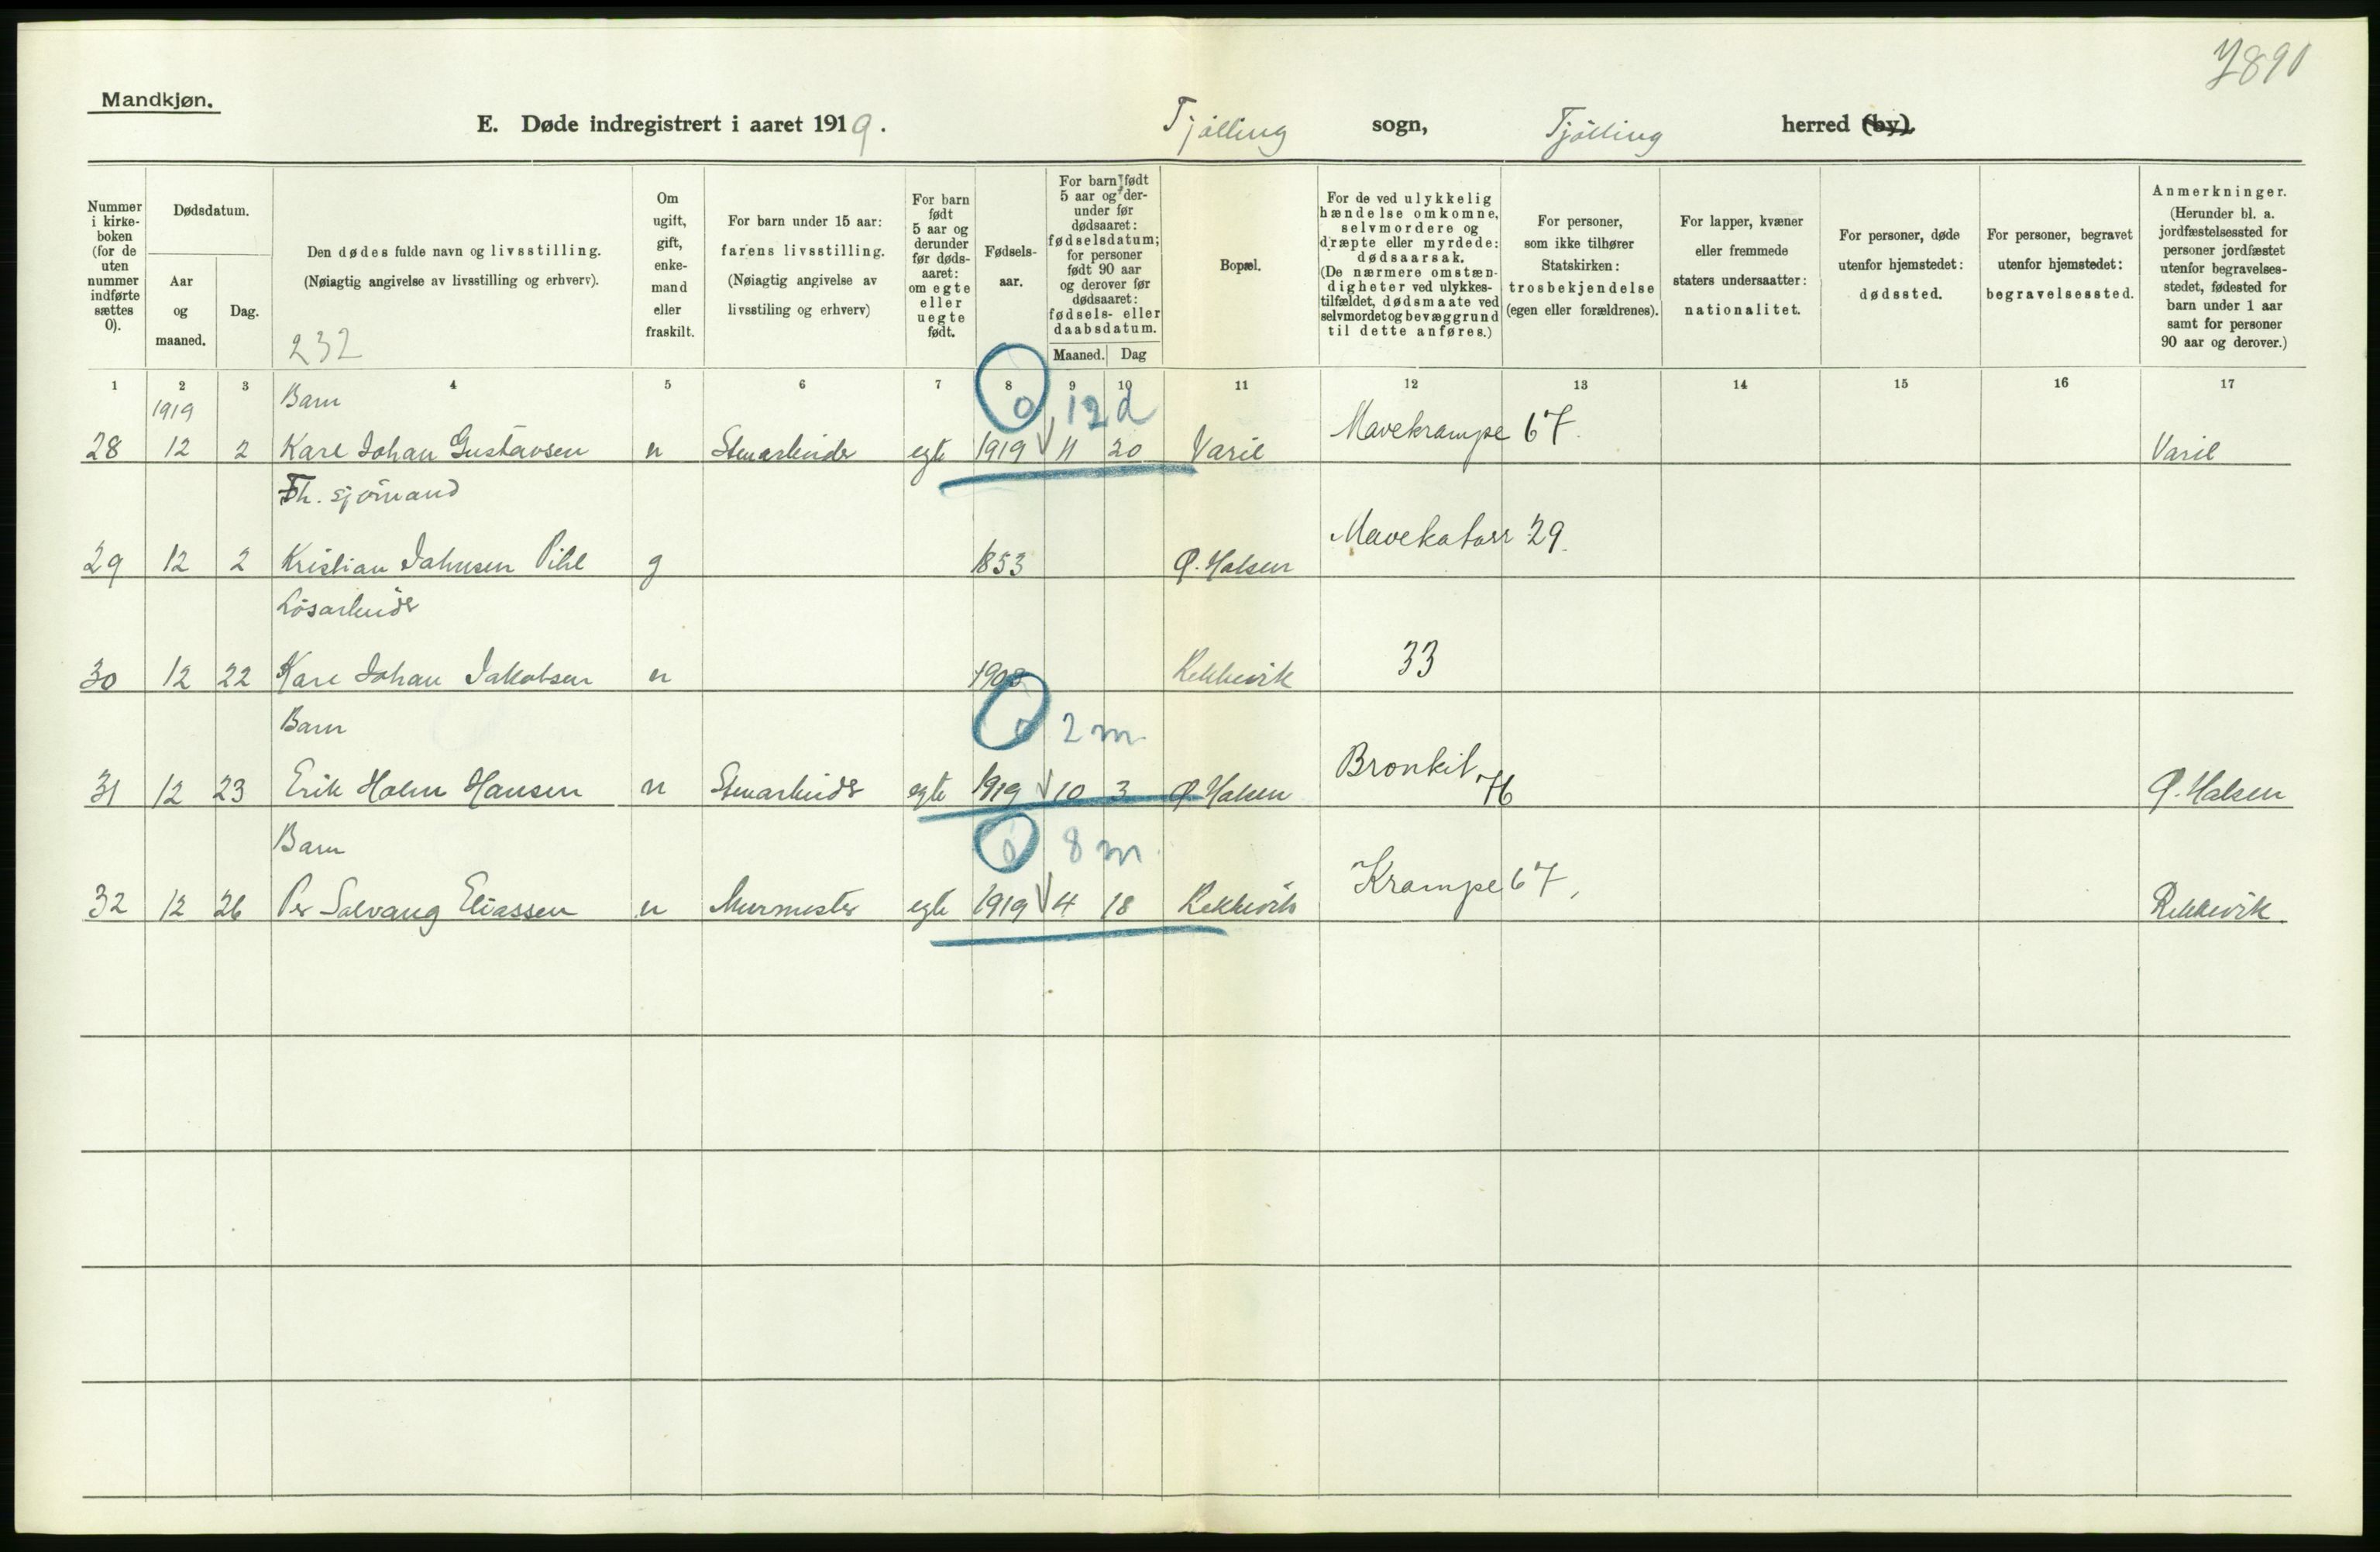 7891
Mandkjøn.
E. Døde indregistrert i aaret 1919. Tjølling sogn, Tjølling herred (by).
Nummer i kirke-boken (for de uten nummer indførte sættes 0).
Dødsdatum.
Aar og maaned.
Dag.
Den dødes fulde navn og livsstilling.
(Nøiagtig angivelse av livsstilling og erhverv).
232
Om ugift, gift, enke-mand eller fraskilt.
For barn under 15 aar:
farens livsstilling.
(Nøiagtig angivelse av
livsstiling og erhverv)
For barn født 5 aar og derunder før døds-aaret: om egte eller uegte født.
Fødsels-aar.
For barn født 5 aar og der-under før dødsaaret: fødselsdatum; for personer født 90 aar og derover før dødsaaret: fødsels- eller daabsdatum.
Maaned. Dag
Bopæl.
For de ved ulykkelig hændelse omkomne, selvmordere og dræpte eller myrdede: dødsaarsak. (De nærmere omstæn-digheter ved ulykkes-tilfældet, dødsmaate ved selvmordet og bevæggrund til dette anføres.)
For personer, som ikke tilhører Statskirken: trosbekjendelse (egen eller forældrenes).
For lapper, kvæner eller fremmede staters undersaatter: nationalitet.
For personer, døde utenfor hjemstedet: dødssted.
For personer, begravet utenfor hjemstedet: begravelsessted.
Anmerkninger.
(Herunder bl. a. jordfæstelsessted for personer jordfæstet utenfor begravelses-stedet, fødested for barn under 1 aar samt for personer 90 aar og derover.)
1 2 3 4 5 6 7 8 9 10 11 12 13 14 15 16 17
1919 Barn 0 12 d
28 12 2 Karl Johan Gustavsen u Stenarbeider egte 1919 11 20 Varil Mavekrampe 67. Varil
Fh. sjømand
29 12 2 Kristian Johnsen Pihl g 1853 Ø. Halsen Mavekatarr 29.
Løsarbeider
30 12 22 Karl Johan Jakobsen u Rekkevik 33
Barn 0 2 m
31 12 23 Erik Holm Hansen u Stenarbeider egte 1919 10 3 Ø. Halsen Bronkit 46 Ø. Halsen
Barn 0 8 m.
32 12 26 Per Solvang Eliassen u Murmester egte 1919 4 18 Rekkevik Krampe 67, Rekkevik.